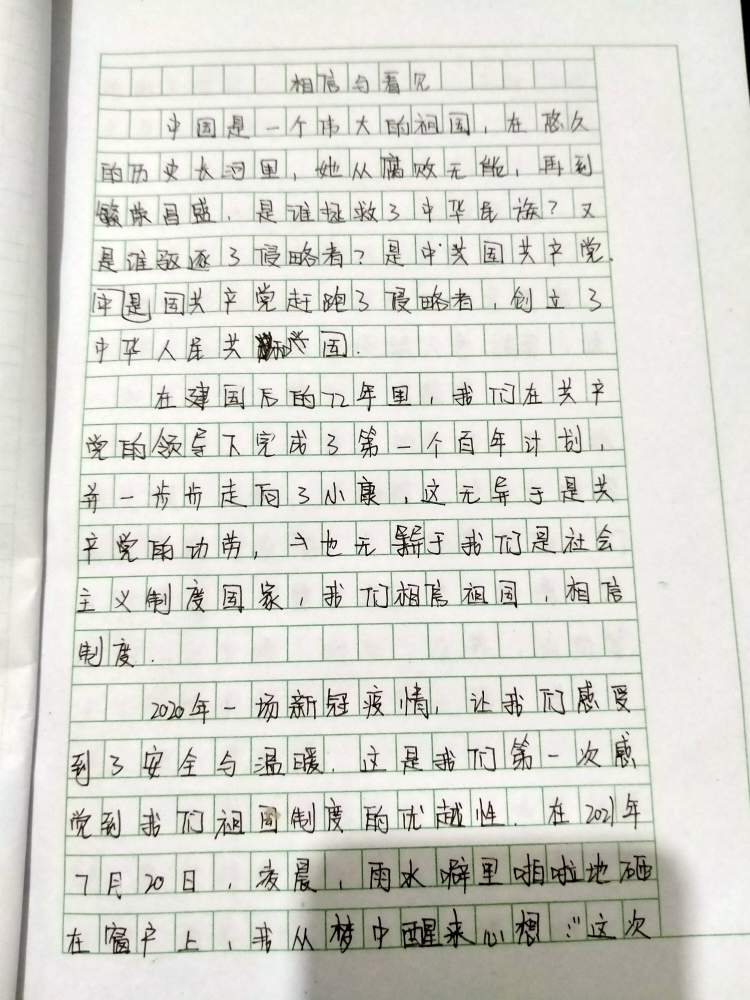 相信与看见
中国是一个伟大的祖国，在悠久
的历史长河里，她从腐败无能，再到
繁荣昌盛，是谁拯救了中华民族？又
是谁驱逐了侵略者？是中共国共产党.
中是国共产党赶跑了侵略者，创立了
中华人民共和国.
在建国后的72年里，我们在共产
党的领导下完成了第一个百年计划，
并一步步走向了小康，这无异于是共
产党的功劳，也无异于我们是社会
主义制度国家，我们相信祖国，相信
制度.
2020年一场新冠疫情，让我们感受
到了安全与温暖.这是我们第一次感
觉到我们祖国制度的优越性.在2021年
7月20日，凌晨，雨水噼里啪啦地砸
在窗户上，我从梦中醒来心想：“这次